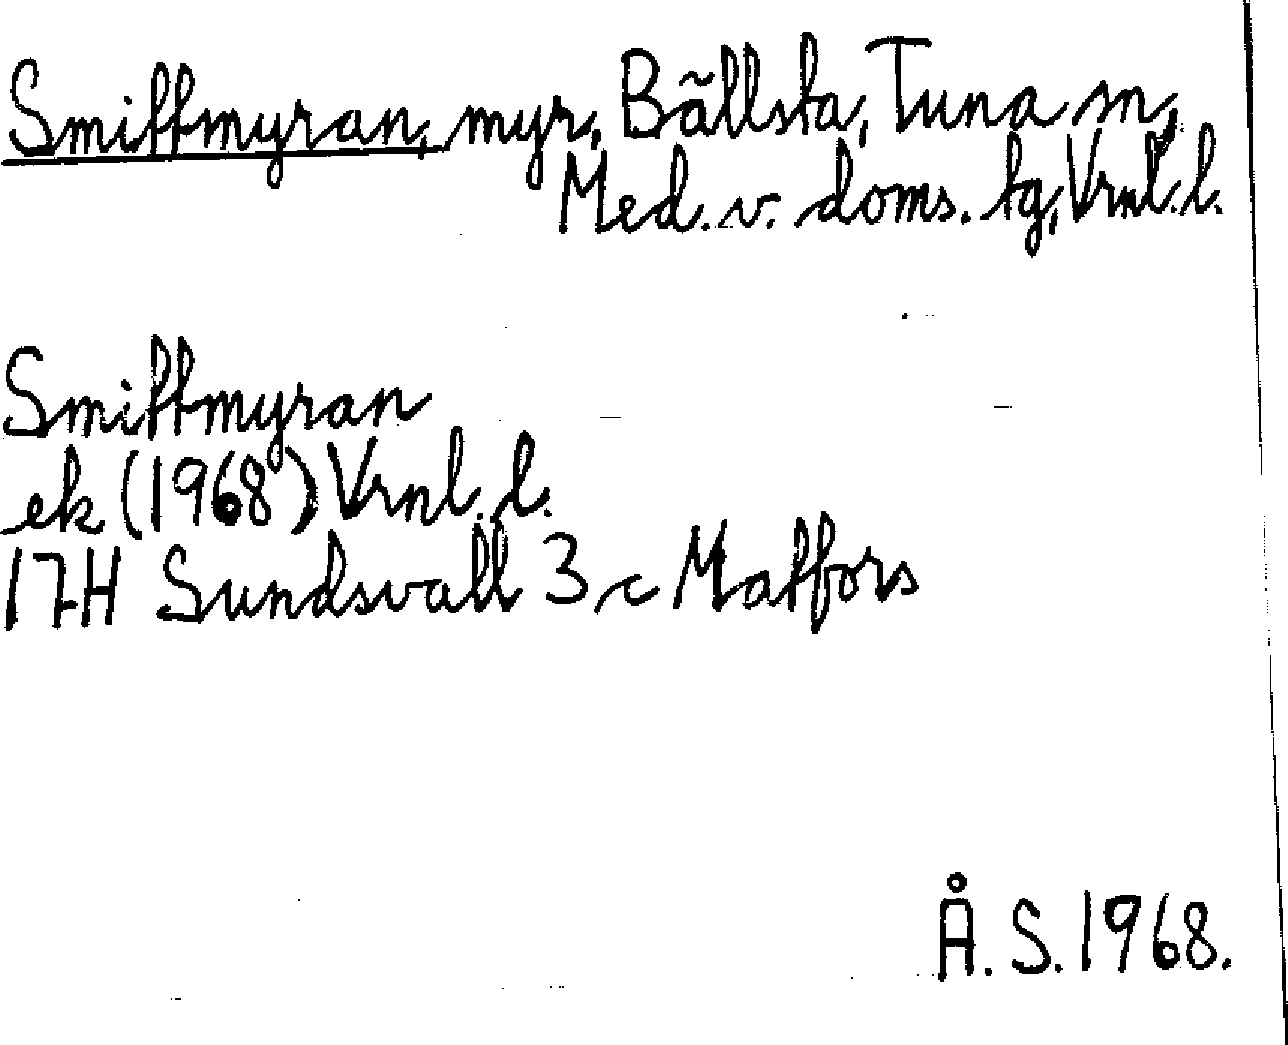 Smittmyran, myr, Bällsta, Tuna sn,
Med. v. doms. tg, Vrnl. l.
Smittmyran
ek (1968) Vrnl. l.
17H Sundsvall 3 c Matfors
Å. S. 1968.